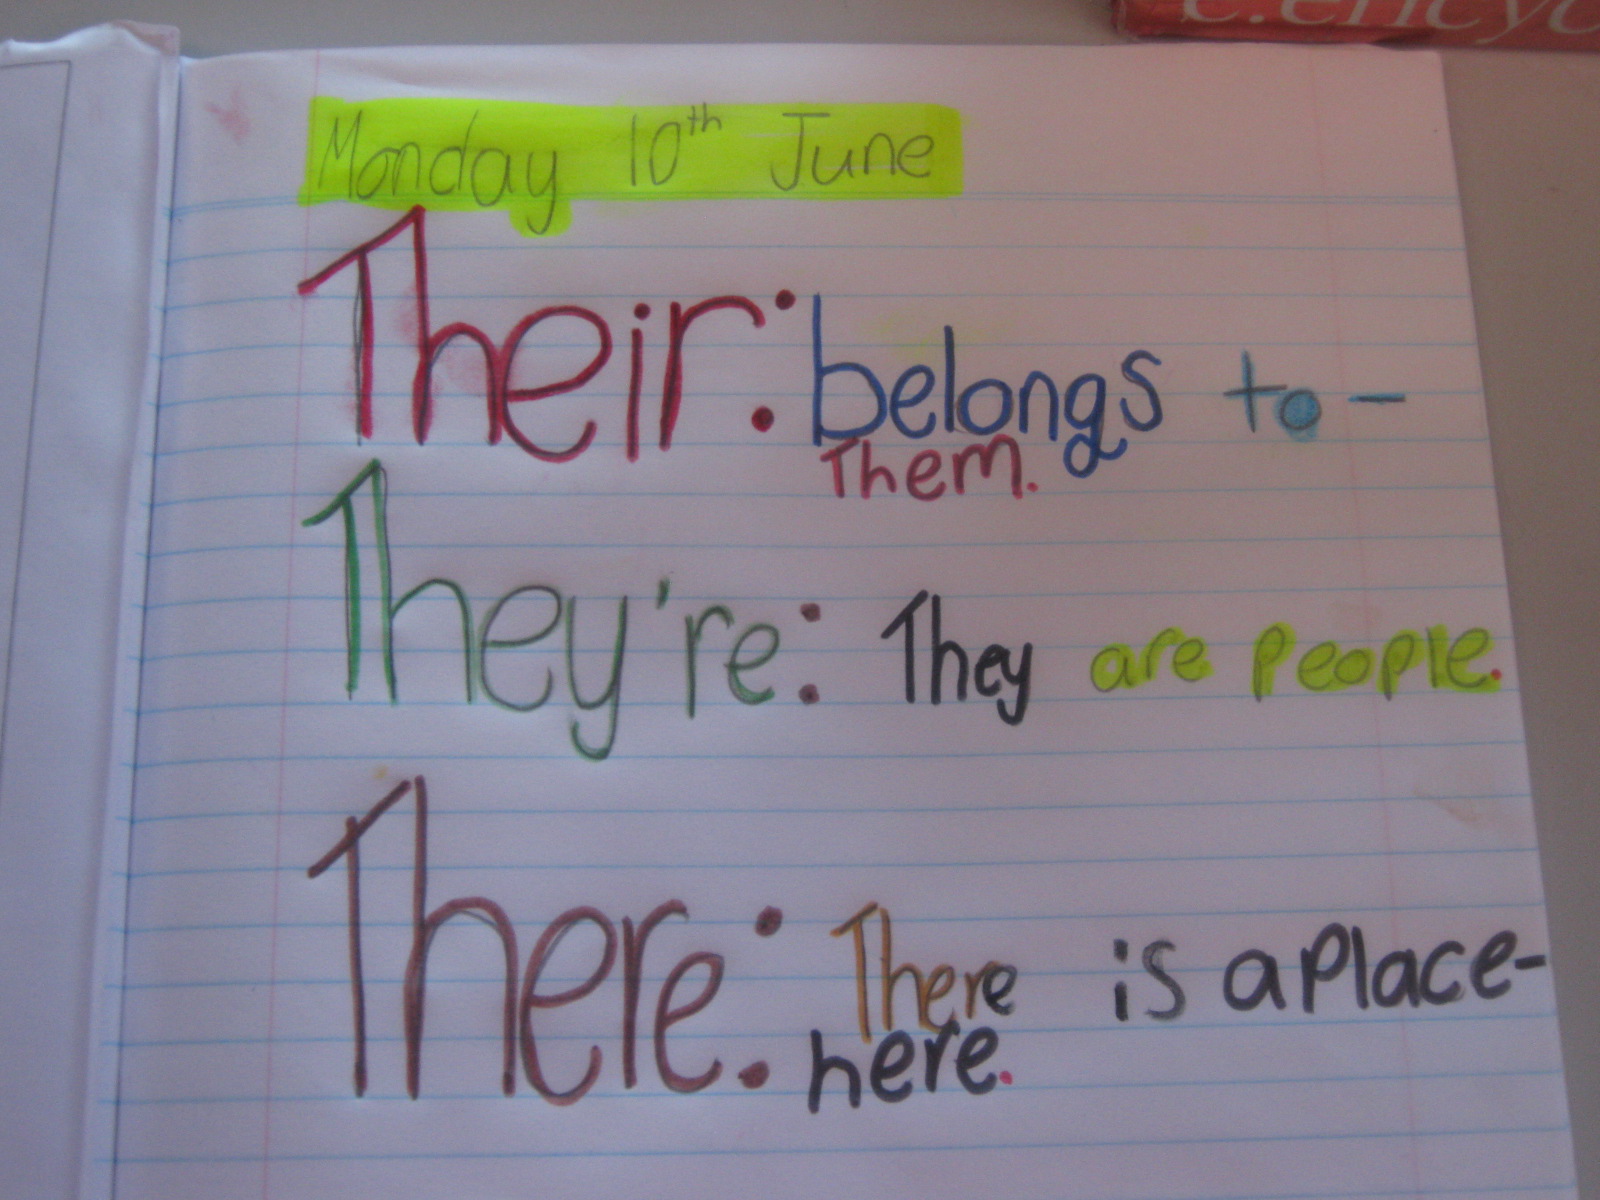 c.encyc
Monday 10th June
Their: belongs to -
Them.
They're: They are people.
There: There is a place-
here.